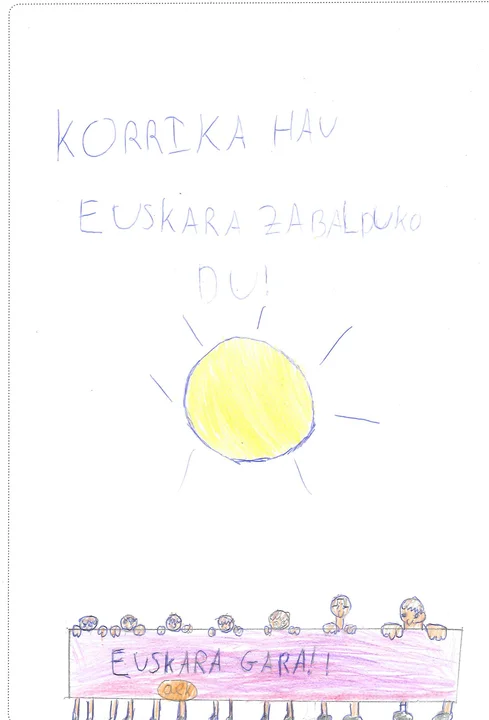 KORRIKA HAU
EUSKARA ZABALDUKO
DU!
EUSKARA GARA!!